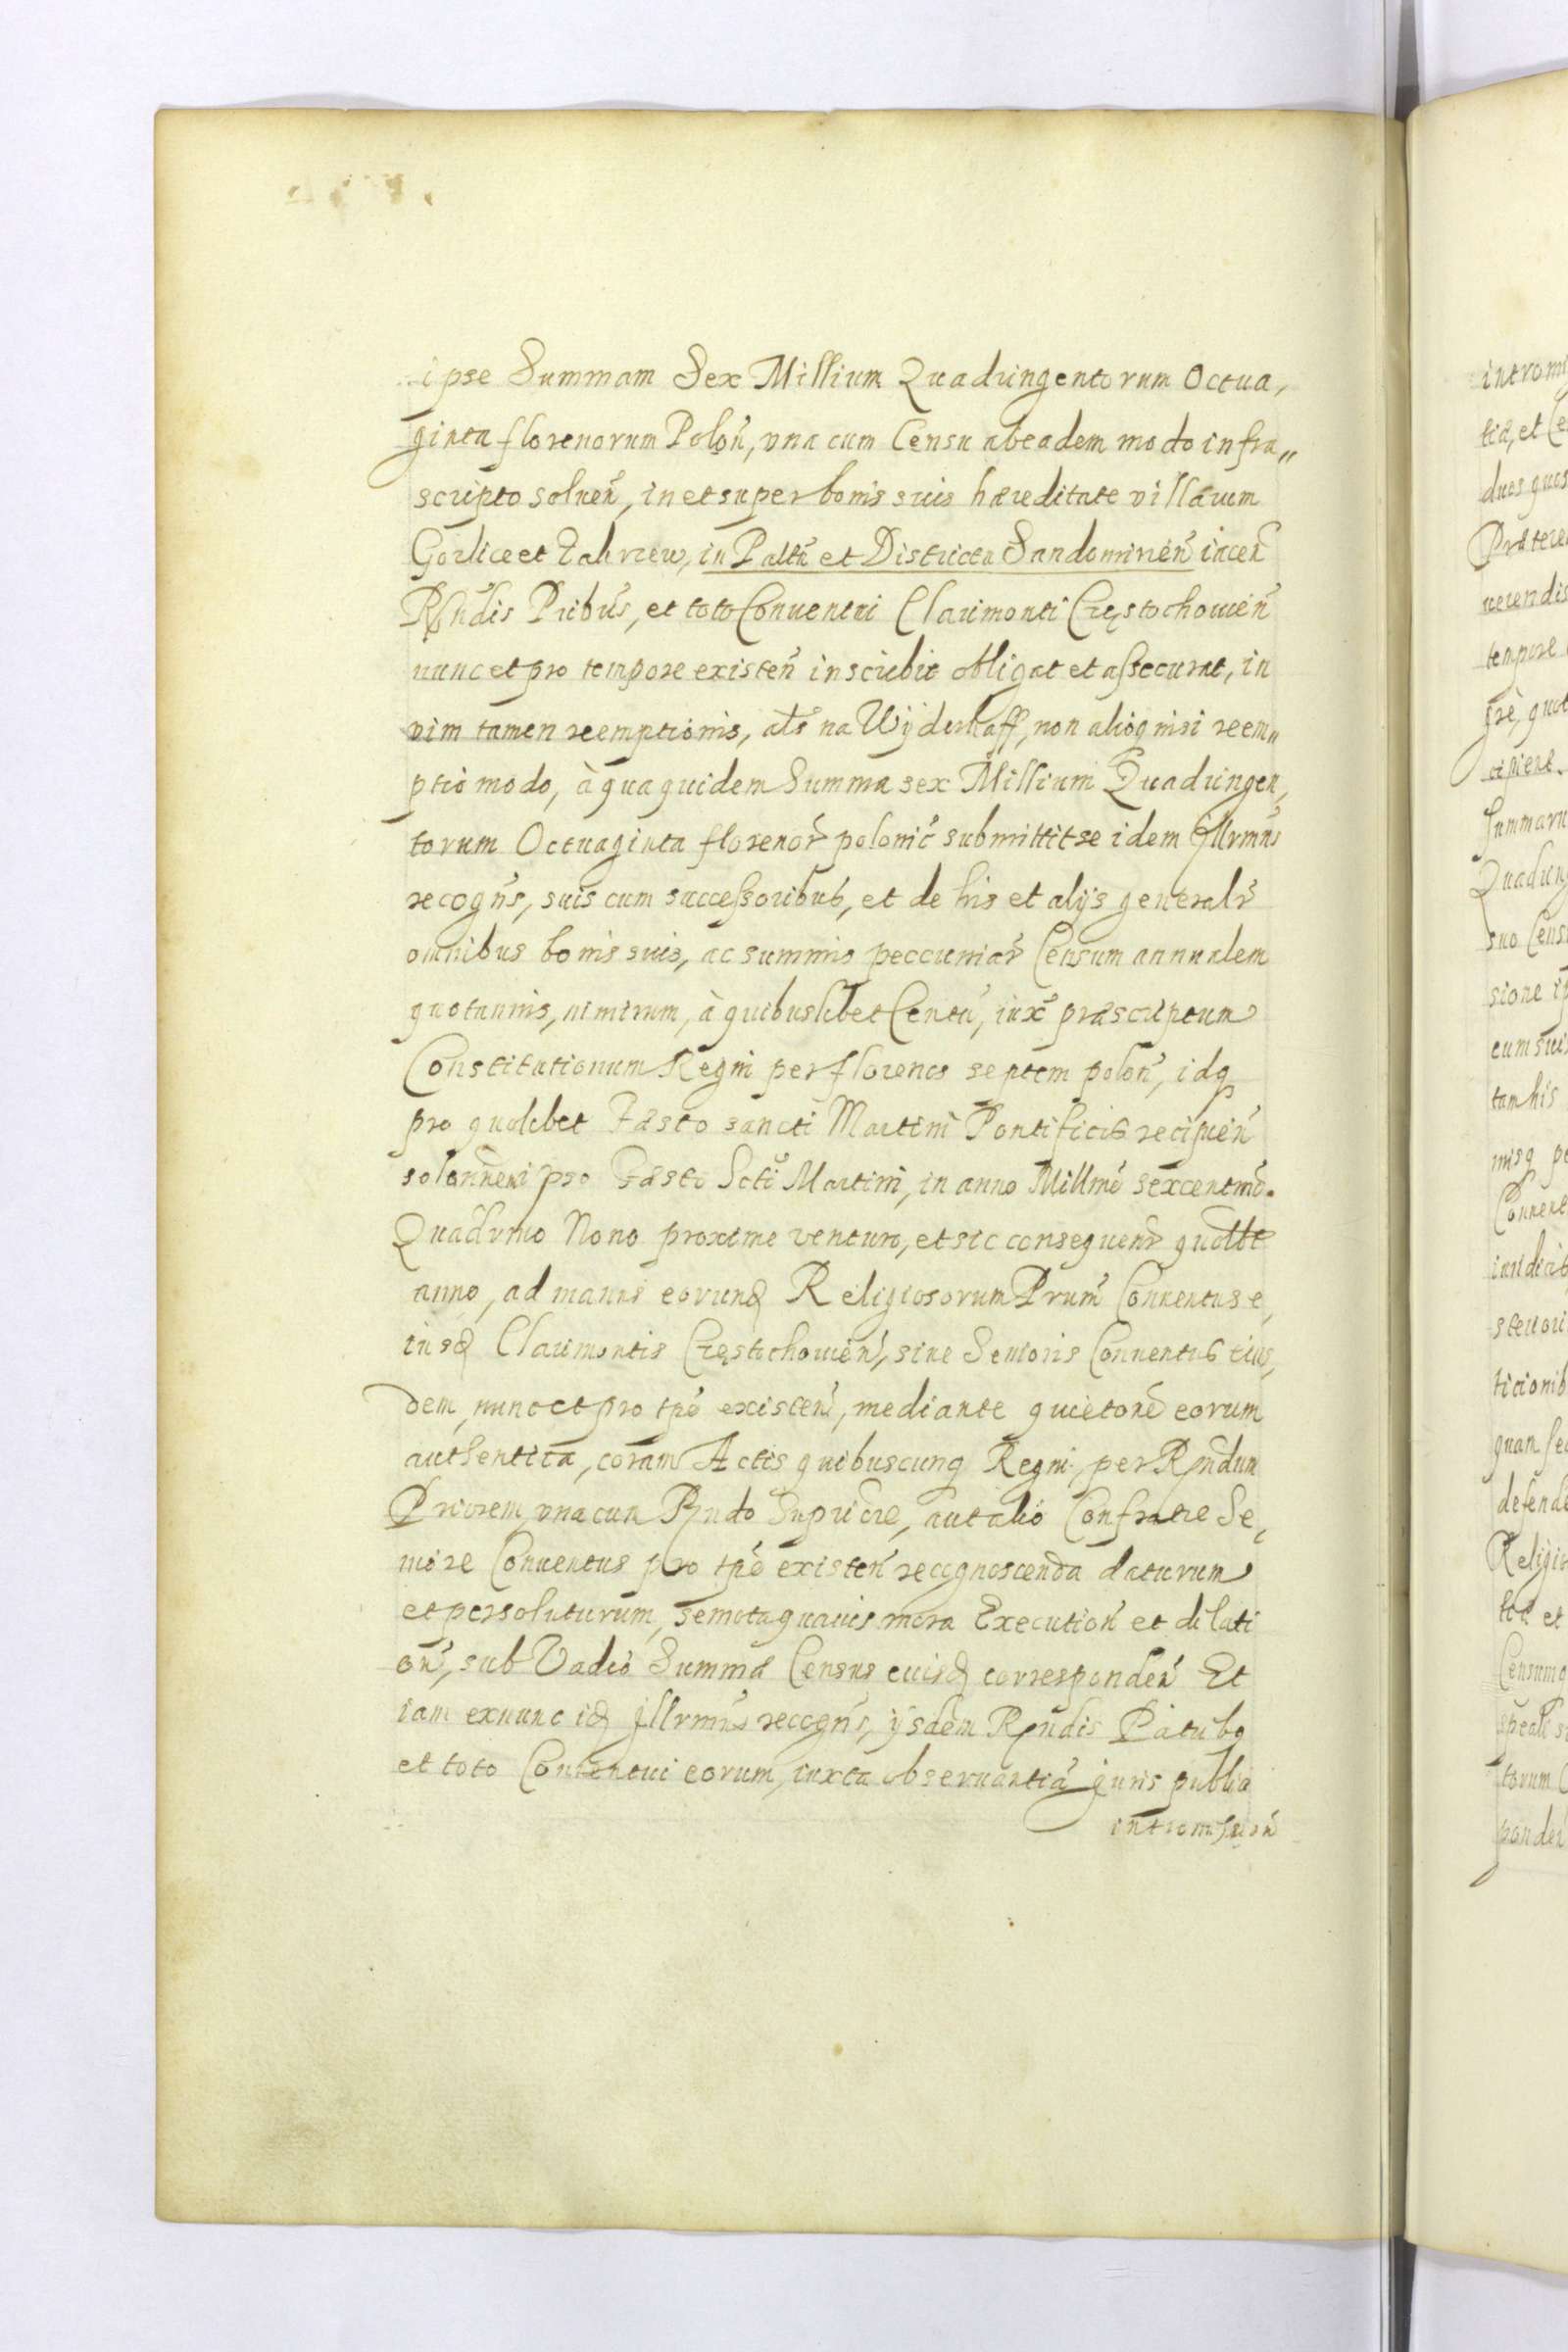 ipse Summam Sex Millium Quadringentorum Octua,
ginta florenorum Poloñ, vna cum Censu ab eadem modo infra„
scripto soluen̄, in et super bonis suis hæreditate villarum
Gorlice et Zakrzew, in Paltū et Districtu Sandomirien̄ iacen̄
Rn̄dis Pribūs, et toto Conuentui Clarimonti Częstochouien̄
nunc et pro tempore existen̄ inscribit obligat et assecurat, in
vim tamen reemptionis, als na Wÿderkaff, non alioq nisi reem„
ptiō modo, à qua quidem Summa sex Millium Quadringen,
torum Octuaginta florenor̄ polonic̄ submittit se idem Illrmūs
recogn̄s, suis cum successoribus, et de his et alijs generalr̄
omnibus bonis suis, ac summis peccuniar̄ Censum annualem
quotannis, nimirum, à quibuslibet Centū, iux̄ præscriptum
Constitutionum Regni per florenos septem polon̄, idq
pro quolibet Fæsto sancti Martini Pontificis recipien̄
pro Fæsto Scti Martini, in anno Millmō sexcentmō.
Quadrmo Nono proxime venturo, et sic consequenr̄ quolbt
anno, ad manus eorund Religiosorum Prum̄ Conuentus e,
iusd Clarimontis Częstochouien̄, siue Senioris Conuentus eius,
dem, nunc et pro tpē existen̄, mediante quietone eorum
authentica, coram Actis quibuscunq Regni, per Rn̄dum
Priorem vna cum Rn̄do Supriore, aut alio Confratre Se,
niore Conuentus pro tpē existen̄ recognoscenda daturum
et persoluturum, semota quauis mora Execution̄ et dilati
on̄, sub Vadio Summæ Census euisd corresponden̄ Et
iam exnunc id Jllrmūs recogn̄s, ÿsdem Rn̄dis Patribq
et toto Conuentui eorum, iuxta obseruantiā iuris publici
intromission̄